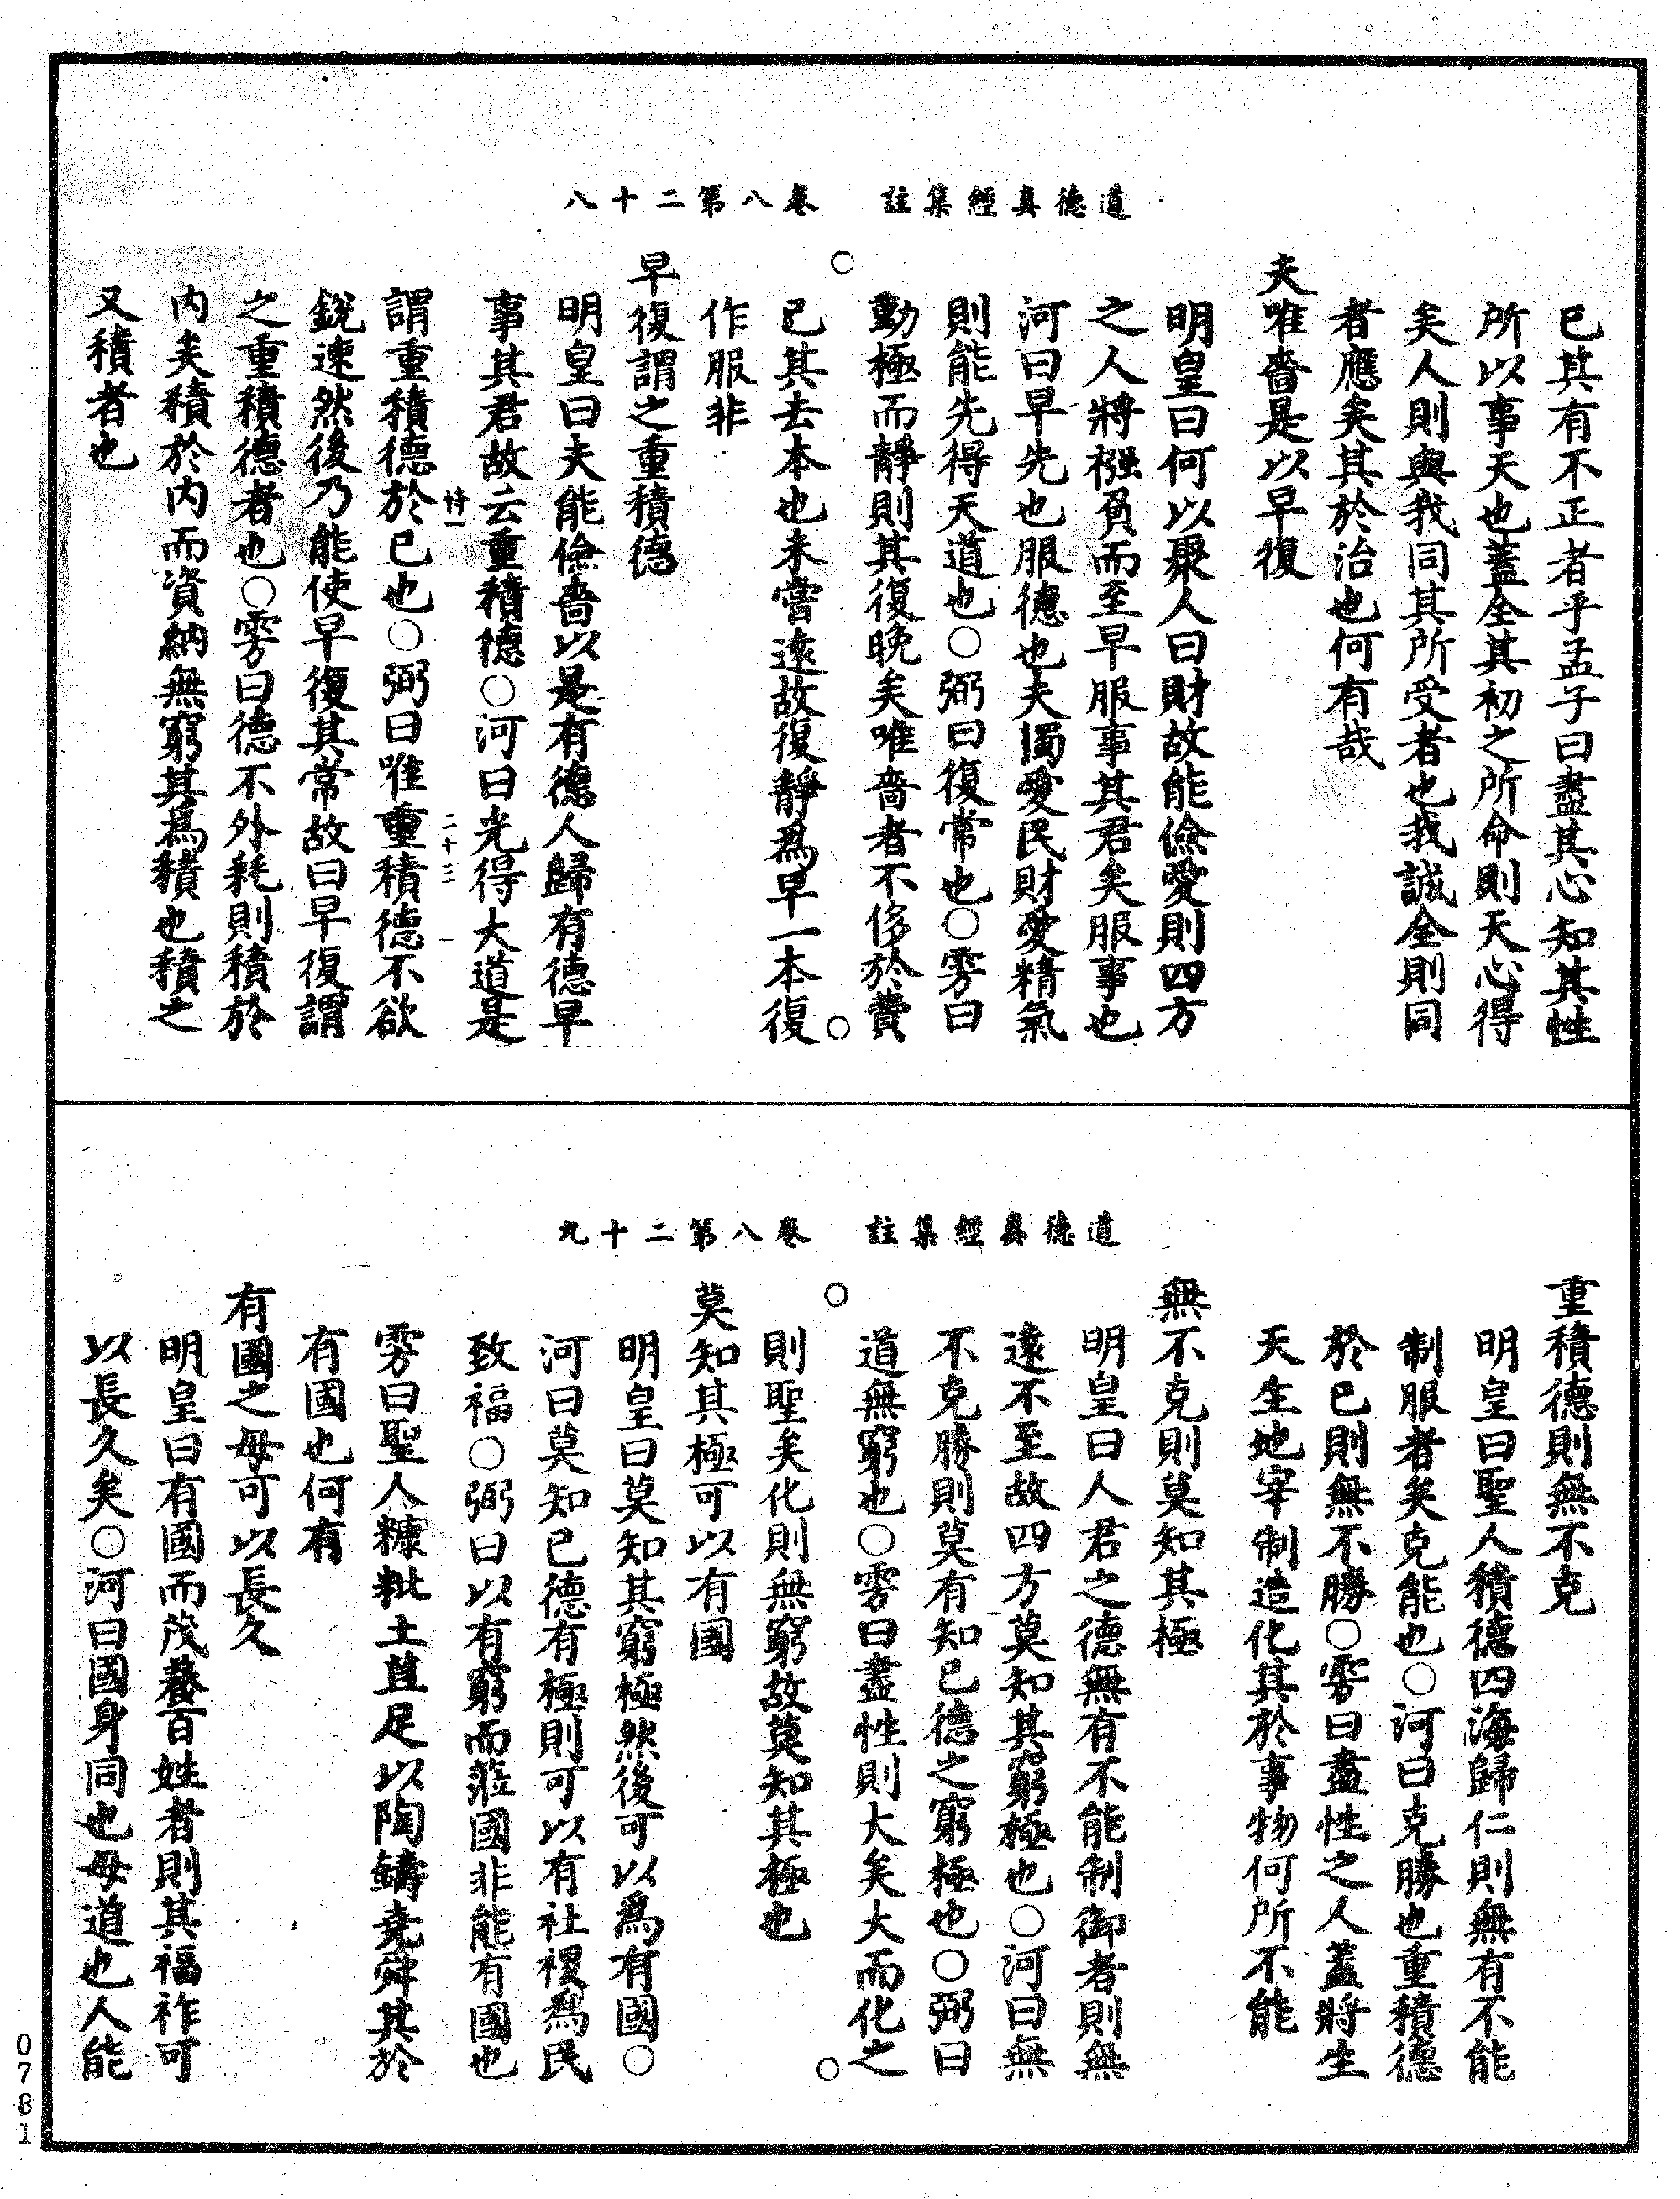 道德真經集註　卷八第二十八
已其有不正者乎孟子曰盡其心知其性
所以事天也蓋全其初之所命則天心得
矣人則與我同其所受者也我誠全則同
者應矣其於治也何有哉
夫唯嗇是以早復
明皇曰何以聚人曰財故能儉愛則四方
之人將襁負而至早服事其君矣服事也
河曰早先也服德也夫獨愛民財愛精氣
則能先得天道也○弼曰復常也○雱曰
動極而靜則其復晚矣唯嗇者不侈於費
已其去本也未嘗遠故復靜爲早一本復
作服非
早復謂之重積德
明皇曰夫能儉嗇以是有德人歸有德早
事其君故云重積德○河曰先得大道是
二十三
謂重積德於已也○弼曰唯重積德不欲
銳速然後乃能使早復其常故曰早復謂
之重積德者也○雱曰德不外耗則積於
内矣積於内而資納無窮其爲積也積之
又積者也
道德真經集註　卷八第二十九
重積德則無不克
明皇曰聖人積德四海歸仁則無有不能
制服者矣克能也○河曰克勝也重積德
於已則無不勝○雱曰盡性之人蓋將生
天生地宰制造化其於事物何所不能
無不克則莫知其極
明皇曰人君之德無有不能制御者則無
遠不至故四方莫知其窮極也○河曰無
不克勝則莫有知已德之窮極也○弼曰
道無窮也○雱曰盡性則大矣大而化之
則聖矣化則無窮故莫知其極也
莫知其極可以有國
明皇曰莫知其窮極然後可以爲有國○
河曰莫知已德有極則可以有社稷爲民
致福○弼曰以有窮而莅國非能有國也
雱曰聖人糠粃土苴足以陶鑄堯舜其於
有國也何有
有國之母可以長久
明皇曰有國而茂養百姓者則其福祚可
以長久矣○河曰國身同也母道也人能
0781